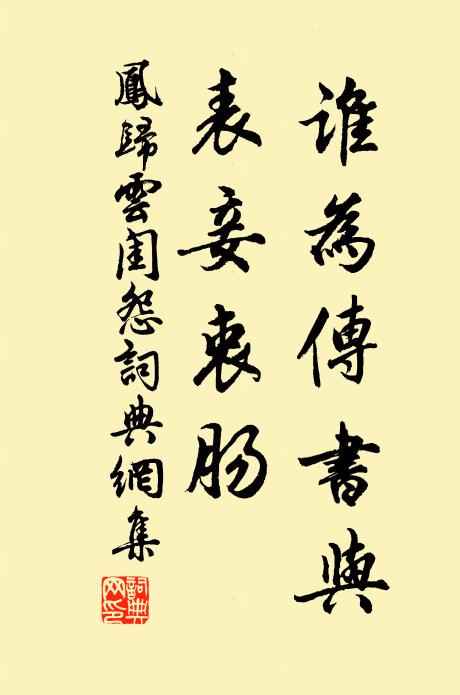 誰為傳書與
表妾衷腸
鳳歸雲閨怨詞典網集
詞典網印